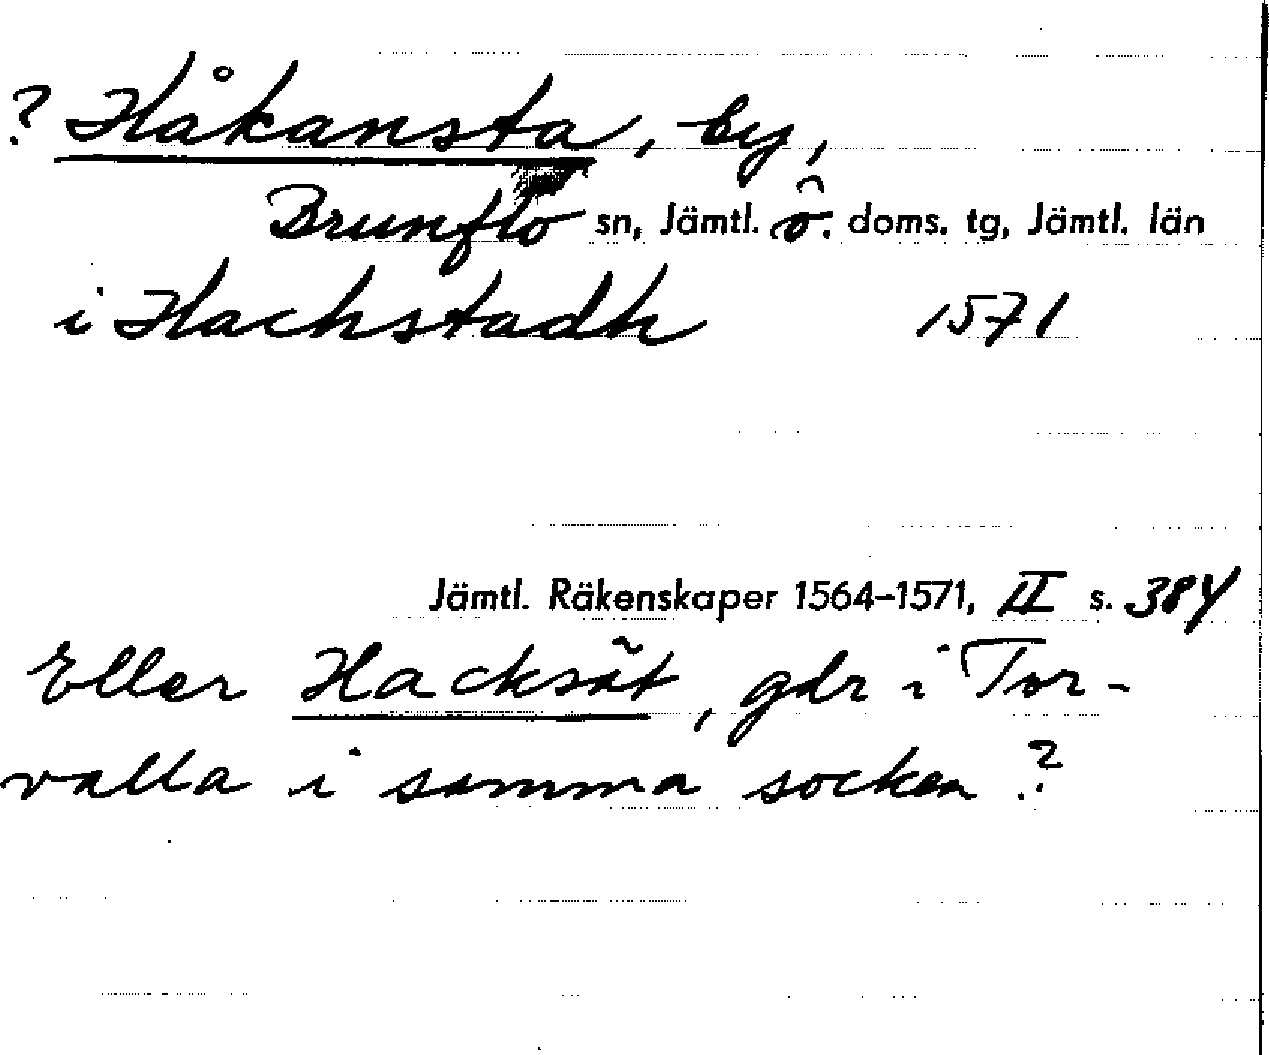 ? Håkansta, by,
Brunflo sn, Jämtl. ö. doms. tg, Jämtl. län
i Hackstadh 1571
Jämtl. Räkenskaper 1564–1571, II s. 384
Eller Hacksät, gdr i Tor-
valla i samma socken?